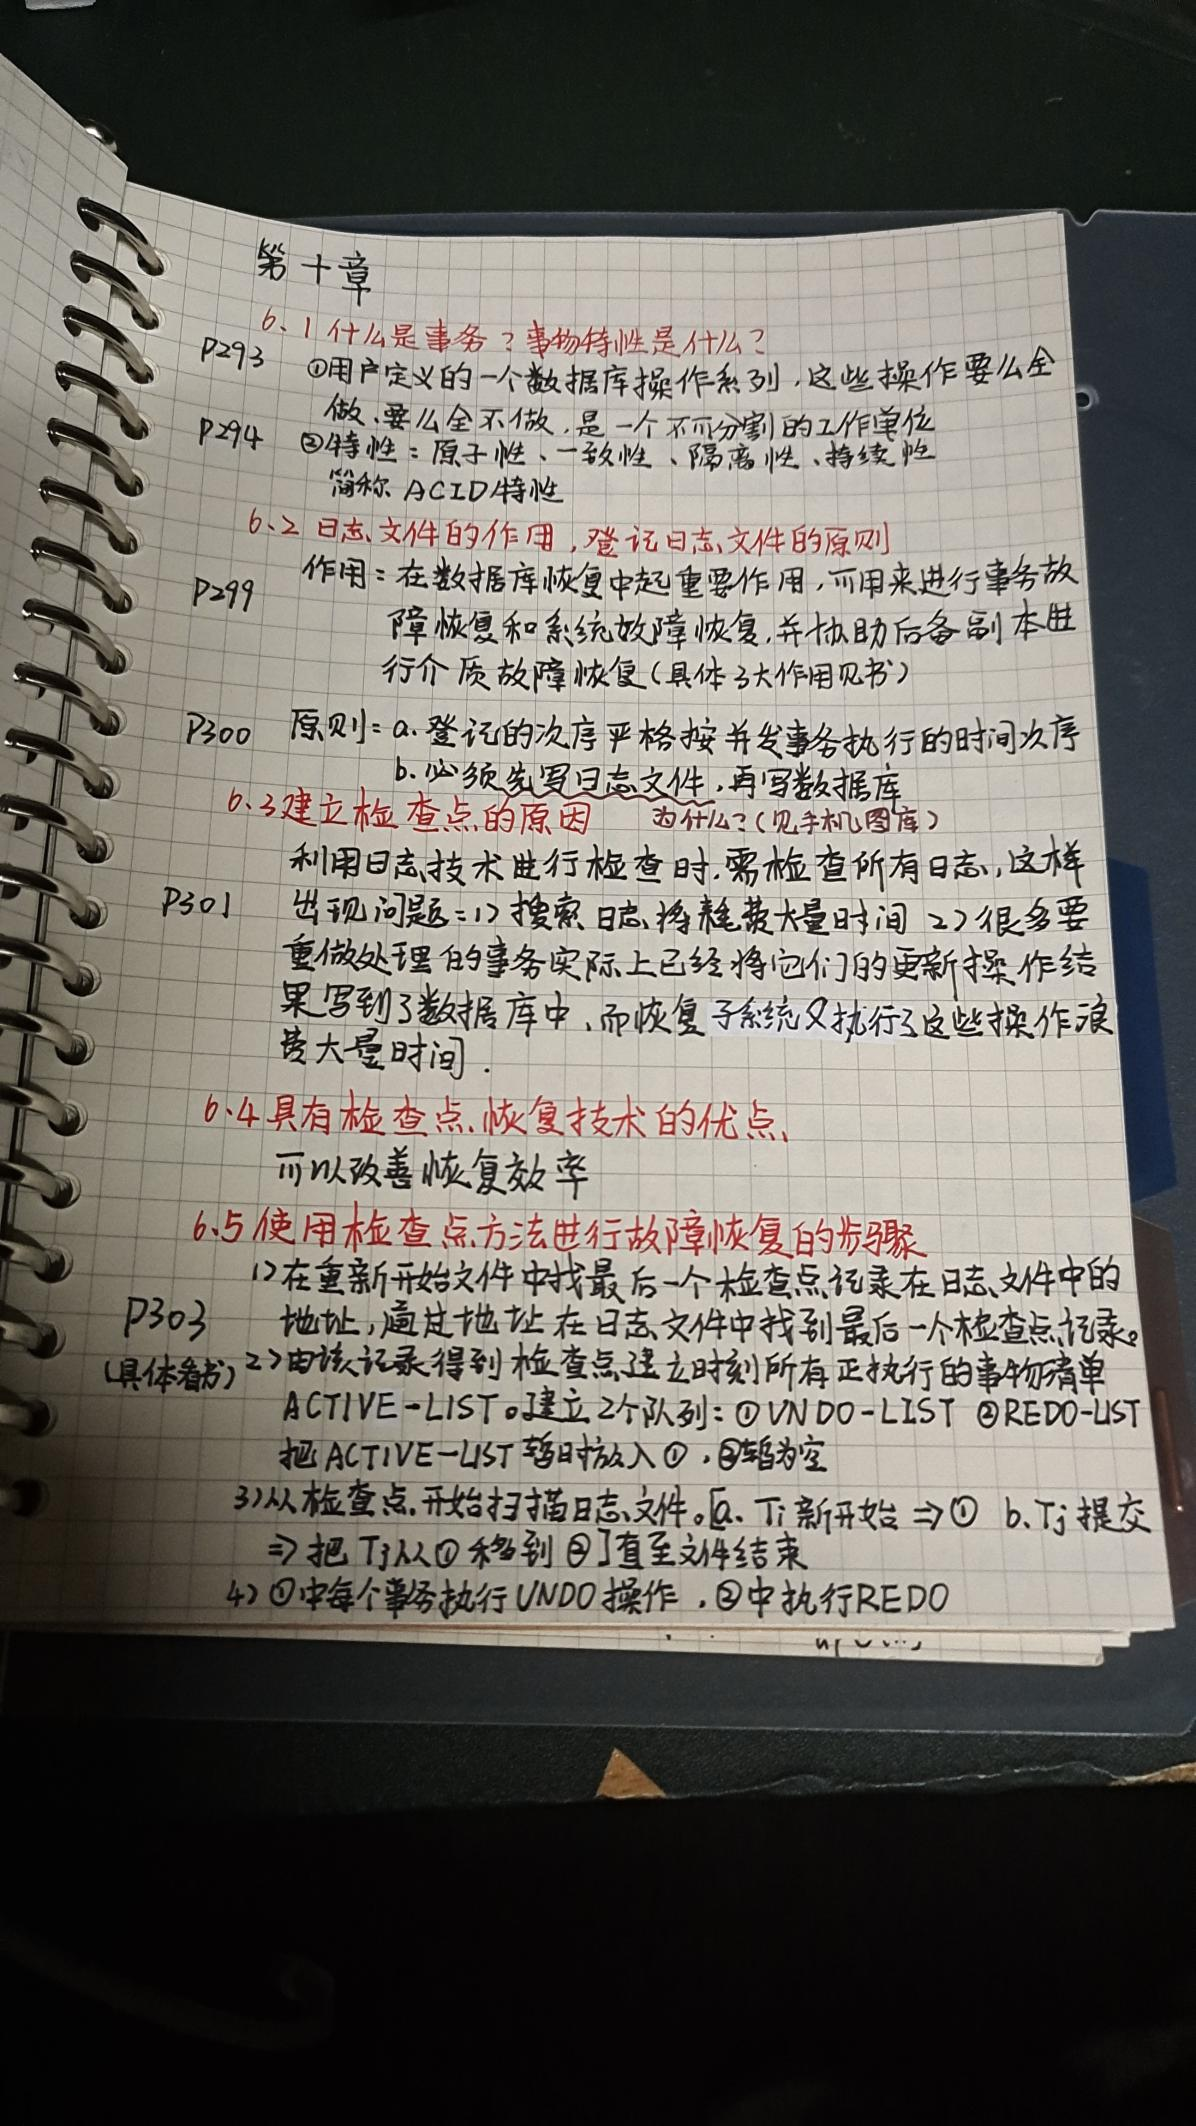 第十章
6.1 什么是事务？事物特性是什么？
P293 ①用户定义的一个数据库操作系列，这些操作要么全
做、要么全不做，是一个不可分割的工作单位
P294 ②特性：原子性、一致性、隔离性、持续性
简称 ACID特性
6.2 日志文件的作用，登记日志文件的原则
P299 作用：在数据库恢复中起重要作用，可用来进行事务故
障恢复和系统故障恢复，并协助后备副本进
行介质故障恢复(具体3大作用见书)
P300 原则：a.登记的次序严格按并发事务执行的时间次序
b.必须先写日志文件，再写数据库
6.3 建立检查点的原因 为什么？(见手机图库)
利用日志技术进行检查时，需检查所有日志，这样
P301 出现问题：1) 搜索日志将耗费大量时间 2) 很多要
重做处理的事务实际上已经将它们的更新操作结
果写到了数据库中、而恢复子系统又执行了这些操作浪
费大量时间.
6.4 具有检查点恢复技术的优点
可以改善恢复效率
6.5 使用检查点方法进行故障恢复的步骤
1)在重新开始文件中找最后一个检查点记录在日志文件中的
P303 地址，通过地址在日志文件中找到最后一个检查点记录。
(具体看书) 2)由该记录得到检查点建立时刻所有正执行的事物清单
ACTIVE-LIST。建立2个队列：①UNDO-LIST ②REDO-LIST
把ACTIVE-LIST暂时放入①，②暂为空
3)从检查点开始扫描日志文件。[a. Ti新开始⇒① b. Tj提交
⇒把Tj从①移到②]直至文件结束
4) ①中每个事务执行UNDO操作，②中执行REDO